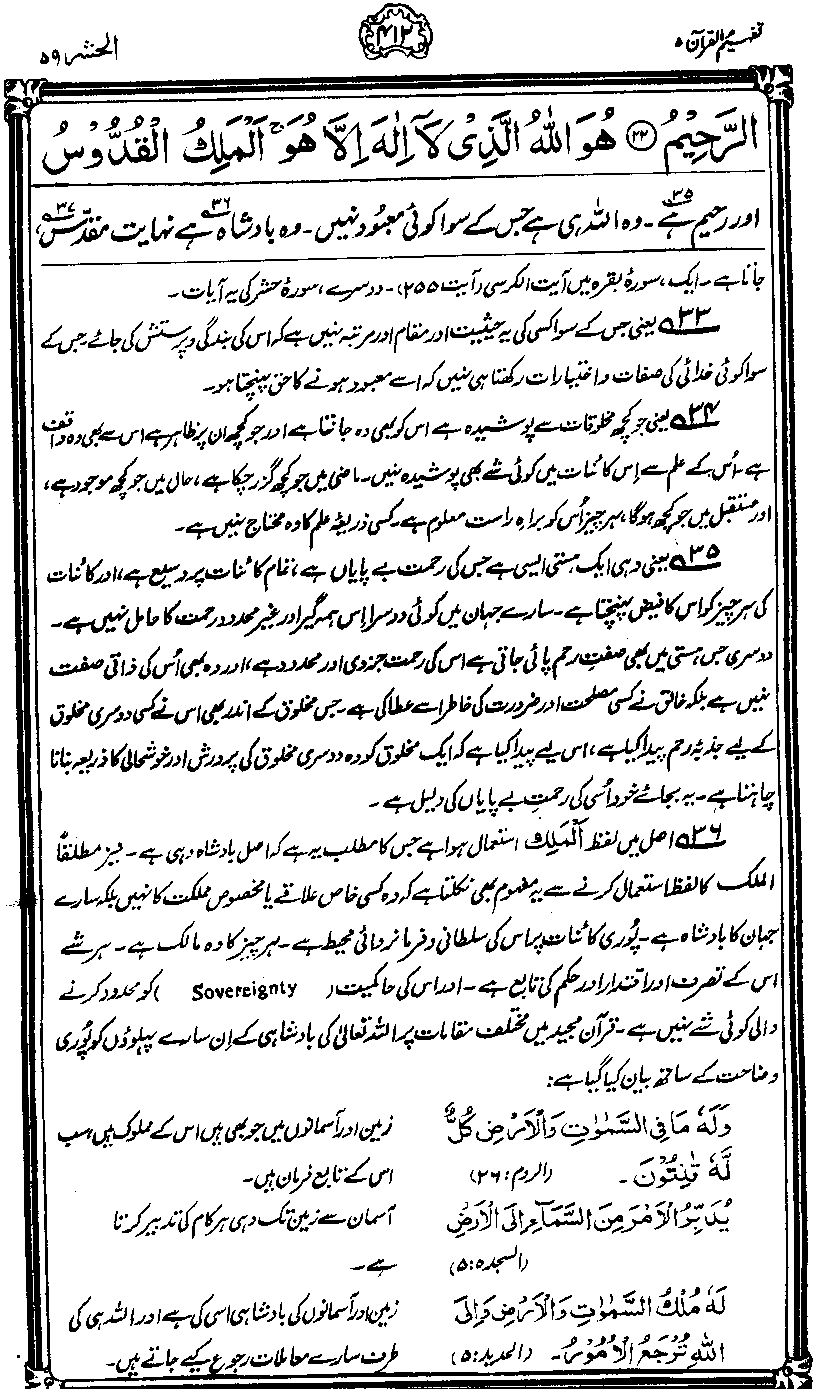 تفہیم القرآن ۵
۴۱۲
الحشر ۵۹
الرَّحِيْمُ ﴿۲۲﴾ هُوَ اللّٰهُ الَّذِىْ لَاۤ اِلٰهَ اِلَّا هُوَ ۚ اَلْمَلِكُ الْقُدُّوْسُ
اور رحیم ہے۳۵۔ وہ اللہ ہی ہے جس کے سوا کوئی معبود نہیں۔ وہ بادشاہ۳۶ ہے نہایت مقدّس۳۷،
جاتا ہے۔ ایک، سورۂ بقرہ میں آیت الکرسی (آیت ۲۵۵)۔ دوسرے، سورۂ حشر کی یہ آیات۔
۳۳ یعنی جس کے سوا کسی کی یہ حیثیت اور مقام اور مرتبہ نہیں ہے کہ اس کی بندگی و پرستش کی جائے۔ جس کے
سوا کوئی خدائی کی صفات و اختیارات رکھتا ہی نہیں کہ اسے معبود ہونے کا حق پہنچتا ہو۔
۳۴ یعنی جو کچھ مخلوقات سے پوشیدہ ہے اس کو بھی وہ جانتا ہے اور جو کچھ ان پر ظاہر ہے اس سے بھی وہ واقف
ہے۔ اُس کے علم سے اِس کائنات میں کوئی شے بھی پوشیدہ نہیں۔ ماضی میں جو کچھ گزر چکا ہے، حال میں جو کچھ موجود ہے،
اور مستقبل میں جو کچھ ہوگا، ہر چیز اُس کو براہِ راست معلوم ہے۔ کسی ذریعۂ علم کا وہ محتاج نہیں ہے۔
۳۵ یعنی وہی ایک ہستی ایسی ہے جس کی رحمت بے پایاں ہے، تمام کائنات پر وسیع ہے، اور کائنات
کی ہر چیز کو اس کا فیض پہنچتا ہے۔ سارے جہان میں کوئی دوسرا اِس ہمہ گیر اور غیر محدود رحمت کا حامل نہیں ہے۔
دوسری جس ہستی میں بھی صفتِ رحم پائی جاتی ہے اس کی رحمت جزوی اور محدود ہے، اور وہ بھی اُس کی ذاتی صفت
نہیں ہے بلکہ خالق نے کسی مصلحت اور ضرورت کی خاطر اسے عطا کی ہے۔ جس مخلوق کے اندر بھی اس نے کسی دوسری مخلوق
کے لیے جذبۂ رحم پیدا کیا ہے، اس لیے پیدا کیا ہے کہ ایک مخلوق کو وہ دوسری مخلوق کی پرورش اور خوشحالی کا ذریعہ بنانا
چاہتا ہے۔ یہ بجائے خود اُسی کی رحمتِ بے پایاں کی دلیل ہے۔
۳۶ اصل میں لفظ اَلْمَلِک استعمال ہوا ہے جس کا مطلب یہ ہے کہ اصل بادشاہ وہی ہے۔ نیز مطلقاً
الملک کا لفظ استعمال کرنے سے یہ مفہوم بھی نکلتا ہے کہ وہ کسی خاص علاقے یا مخصوص مملکت کا نہیں بلکہ سارے
جہان کا بادشاہ ہے۔ پُوری کائنات پر اس کی سلطانی و فرمانروائی محیط ہے۔ ہر چیز کا وہ مالک ہے۔ ہر شے
اس کے تصرف اور اقتدار اور حکم کی تابع ہے۔ اور اس کی حاکمیت (Sovereignty) کو محدود کرنے
والی کوئی شے نہیں ہے۔ قرآن مجید میں مختلف مقامات پر اللہ تعالیٰ کی بادشاہی کے اِن سارے پہلوؤں کو پُوری
وضاحت کے ساتھ بیان کیا گیا ہے:
وَلَهٗ مَا فِى السَّمٰوٰتِ وَالْاَرْضِ كُلٌّ زمین اور آسمانوں میں جو بھی ہیں اس کے مملوک ہیں، سب
لَّهٗ قٰنِتُوْنَ۔ (الروم: ۲۶) اس کے تابع فرمان ہیں۔
يُدَبِّرُ الْاَمْرَ مِنَ السَّمَآءِ اِلَى الْاَرْضِ آسمان سے زمین تک وہی ہر کام کی تدبیر کرتا
(السجدہ: ۵) ہے۔
لَهٗ مُلْكُ السَّمٰوٰتِ وَالْاَرْضِ وَاِلَى زمین اور آسمانوں کی بادشاہی اسی کی ہے اور اللہ ہی کی
اللهِ تُرْجَعُ الْاُمُوْرُ۔ (الحدید: ۵) طرف سارے معاملات رجوع کیے جاتے ہیں۔